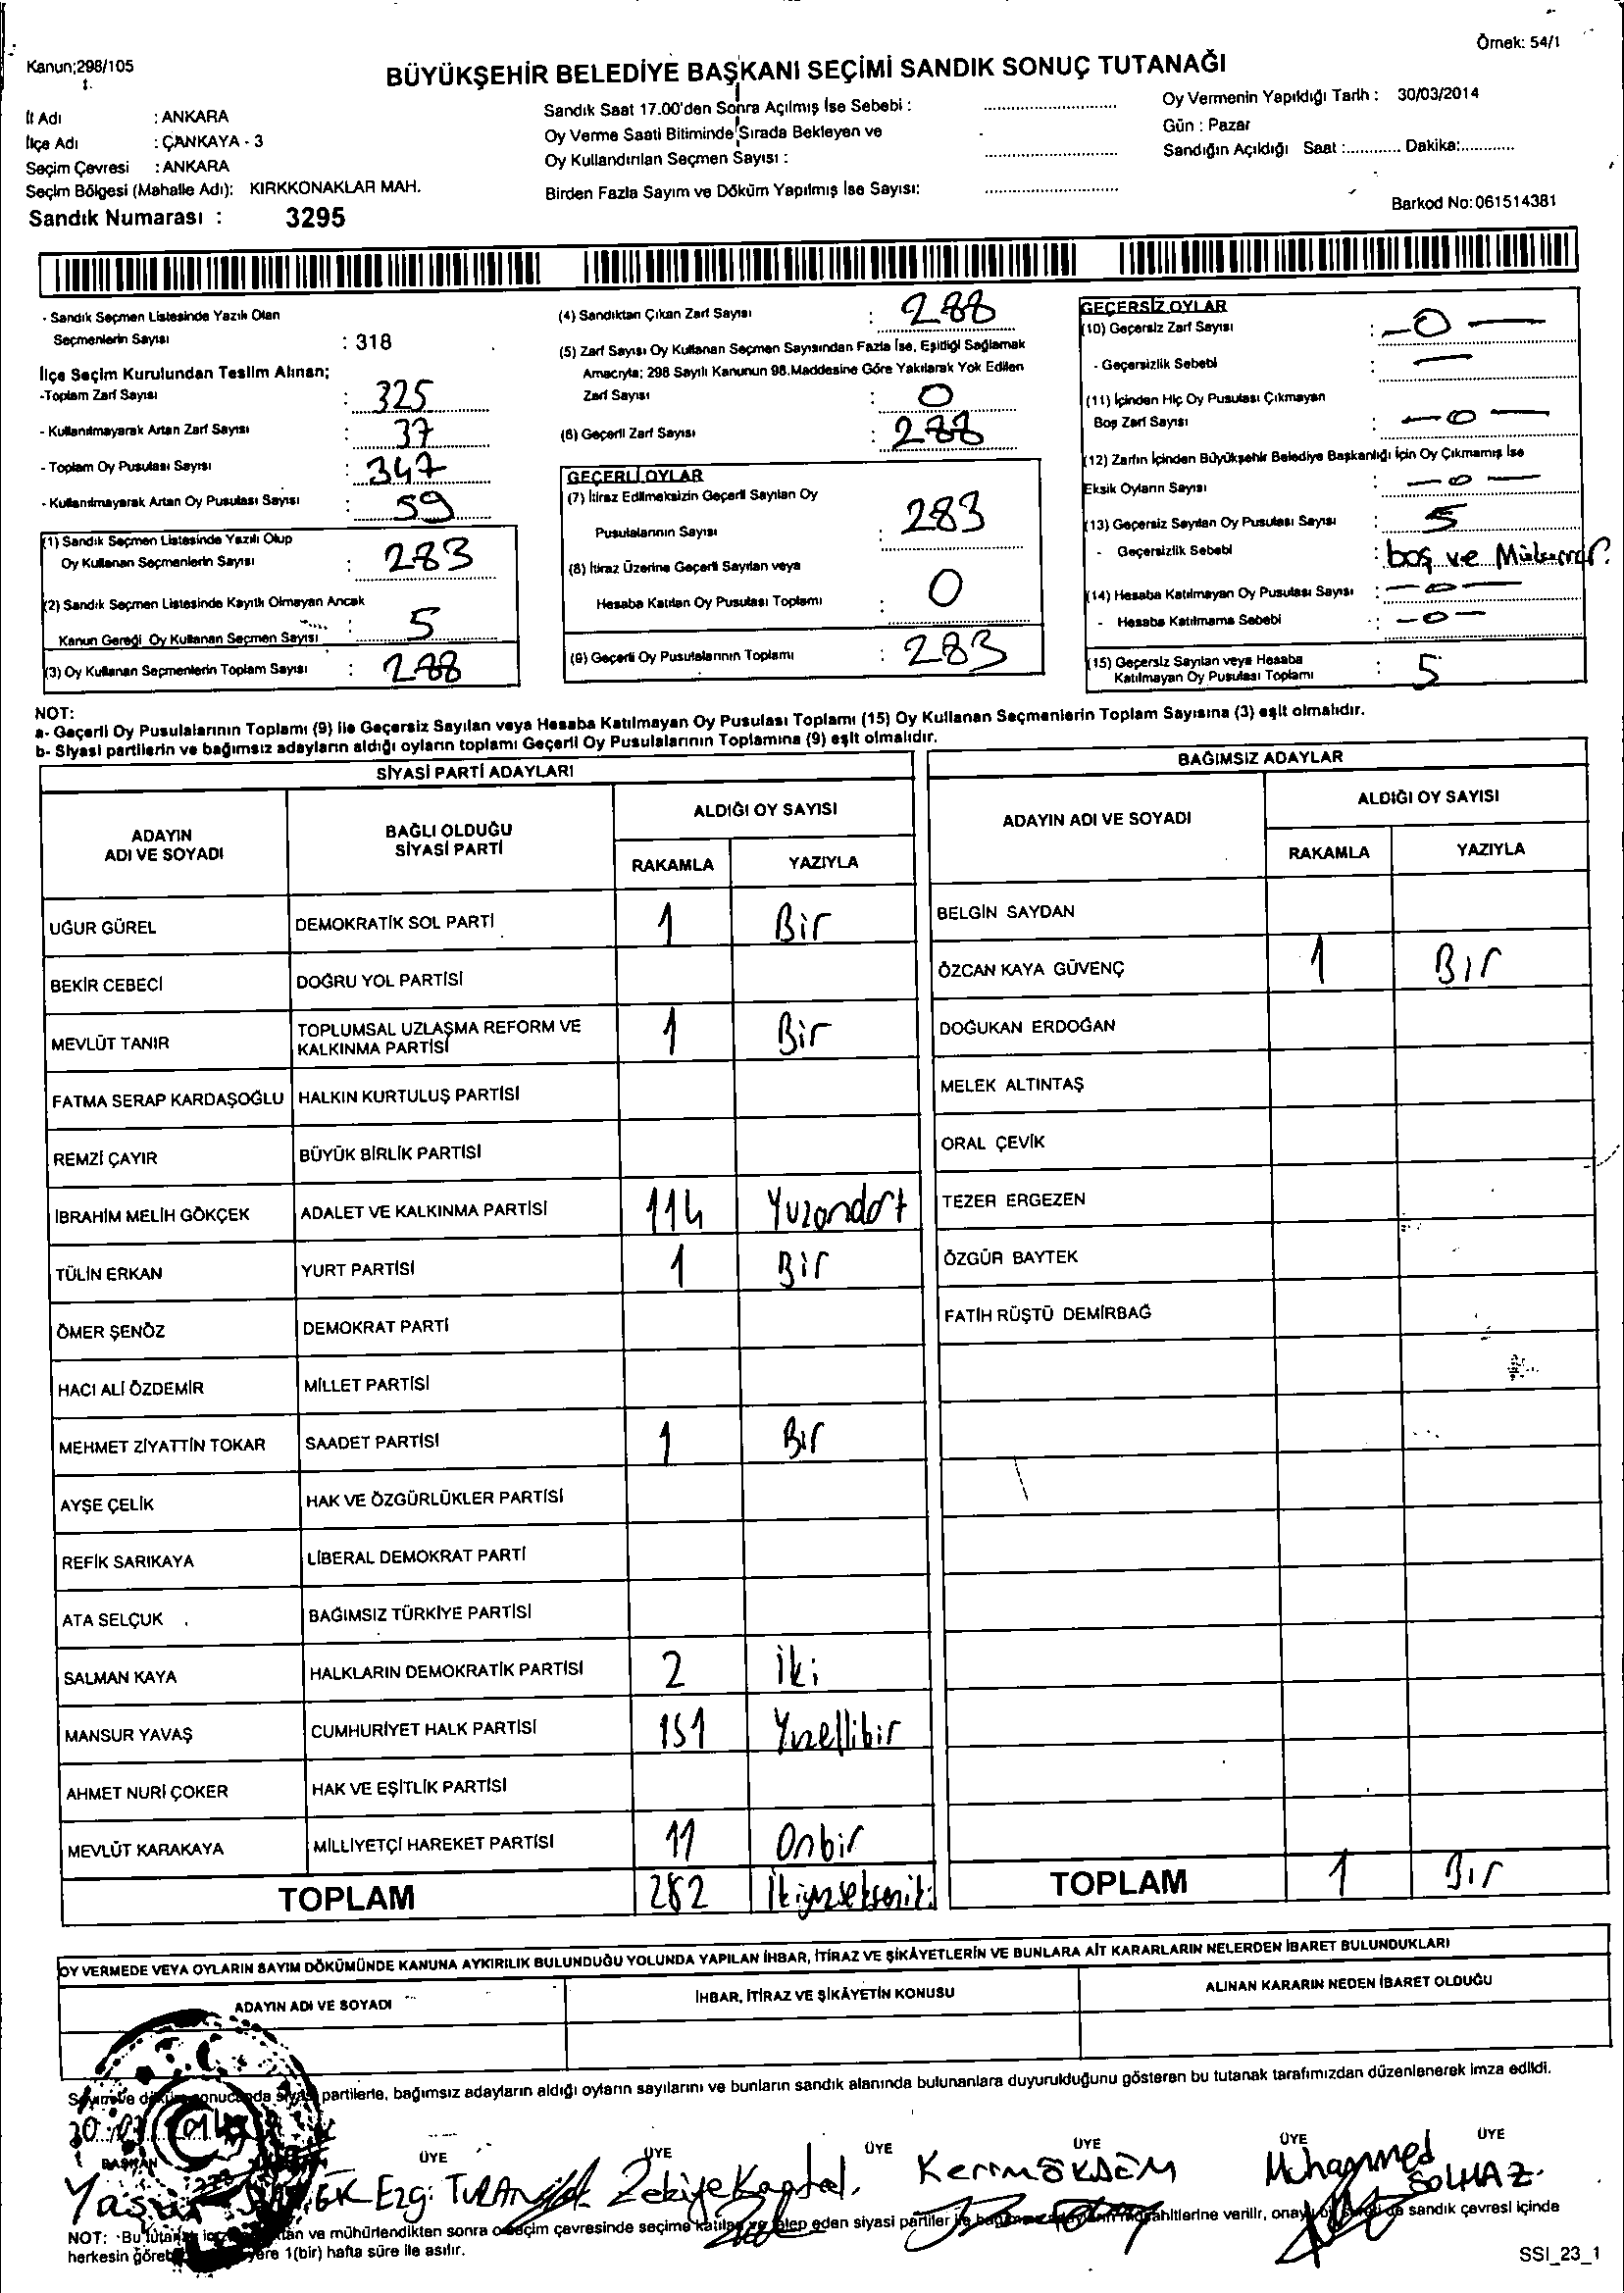 Örnek: 54/1
Kanun;298/105
BÜYÜKŞEHİR BELEDİYE BAŞKANI SEÇİMİ SANDIK SONUÇ TUTANAĞI
İl Adı : ANKARA
İlçe Adı : ÇANKAYA - 3
Seçim Çevresi : ANKARA
Seçim Bölgesi (Mahalle Adı): KIRKKONAKLAR MAH.
Sandık Numarası : 3295
Sandık Saat 17.00'den Sonra Açılmış İse Sebebi :
Oy Verme Saati Bitiminde Sırada Bekleyen ve
Oy Kullandırılan Seçmen Sayısı :
Birden Fazla Sayım ve Döküm Yapılmış İse Sayısı:
Oy Vermenin Yapıldığı Tarih : 30/03/2014
Gün : Pazar
Sandığın Açıldığı Saat :............ Dakika:............
Barkod No:061514381
- Sandık Seçmen Listesinde Yazılı Olan
Seçmenlerin Sayısı : 318
İlçe Seçim Kurulundan Teslim Alınan;
-Toplam Zarf Sayısı : 325
- Kullanılmayarak Artan Zarf Sayısı : 37
- Toplam Oy Pusulası Sayısı : 347
- Kullanılmayarak Artan Oy Pusulası Sayısı : 59
(1) Sandık Seçmen Listesinde Yazılı Olup
Oy Kullanan Seçmenlerin Sayısı : 283
(2) Sandık Seçmen Listesinde Kayıtlı Olmayan Ancak
Kanun Gereği Oy Kullanan Seçmen Sayısı : 5
(3) Oy Kullanan Seçmenlerin Toplam Sayısı : 288
(4) Sandıktan Çıkan Zarf Sayısı : 288
(5) Zarf Sayısı Oy Kullanan Seçmen Sayısından Fazla İse, Eşitliği Sağlamak
Amacıyla; 298 Sayılı Kanunun 98.Maddesine Göre Yakılarak Yok Edilen
Zarf Sayısı : 0
(6) Geçerli Zarf Sayısı : 288
GEÇERLİ OYLAR
(7) İtiraz Edilmeksizin Geçerli Sayılan Oy
Pusulalarının Sayısı : 283
(8) İtiraz Üzerine Geçerli Sayılan veya
Hesaba Katılan Oy Pusulası Toplamı : 0
(9) Geçerli Oy Pusulalarının Toplamı : 283
GEÇERSİZ OYLAR
(10) Geçersiz Zarf Sayısı : -0-
- Geçersizlik Sebebi : -
(11) İçinden Hiç Oy Pusulası Çıkmayan
Boş Zarf Sayısı : -0-
(12) Zarfın İçinden Büyükşehir Belediye Başkanlığı İçin Oy Çıkmamış İse
Eksik Oyların Sayısı : -0-
(13) Geçersiz Sayılan Oy Pusulası Sayısı : 5
- Geçersizlik Sebebi : boş ve
(14) Hesaba Katılmayan Oy Pusulası Sayısı : -0-
- Hesaba Katılmama Sebebi : -0-
(15) Geçersiz Sayılan veya Hesaba
Katılmayan Oy Pusulası Toplamı : 5
NOT:
a- Geçerli Oy Pusulalarının Toplamı (9) ile Geçersiz Sayılan veya Hesaba Katılmayan Oy Pusulası Toplamı (15) Oy Kullanan Seçmenlerin Toplam Sayısına (3) eşit olmalıdır.
b- Siyasi partilerin ve bağımsız adayların aldığı oyların toplamı Geçerli Oy Pusulalarının Toplamına (9) eşit olmalıdır.
SİYASİ PARTİ ADAYLARI
ADAYIN ADI VE SOYADI BAĞLI OLDUĞU SİYASİ PARTİ ALDIĞI OY SAYISI
RAKAMLA YAZIYLA
UĞUR GÜREL DEMOKRATİK SOL PARTİ 1 Bir
BEKİR CEBECİ DOĞRU YOL PARTİSİ
MEVLÜT TANIR TOPLUMSAL UZLAŞMA REFORM VE KALKINMA PARTİSİ 1 Bir
FATMA SERAP KARDAŞOĞLU HALKIN KURTULUŞ PARTİSİ
REMZİ ÇAYIR BÜYÜK BİRLİK PARTİSİ
İBRAHİM MELİH GÖKÇEK ADALET VE KALKINMA PARTİSİ 114 Yuzondort
TÜLİN ERKAN YURT PARTİSİ 1 Bir
ÖMER ŞENÖZ DEMOKRAT PARTİ
HACI ALİ ÖZDEMİR MİLLET PARTİSİ
MEHMET ZİYATTİN TOKAR SAADET PARTİSİ 1 Bir
AYŞE ÇELİK HAK VE ÖZGÜRLÜKLER PARTİSİ
REFİK SARIKAYA LİBERAL DEMOKRAT PARTİ
ATA SELÇUK BAĞIMSIZ TÜRKİYE PARTİSİ
SALMAN KAYA HALKLARIN DEMOKRATİK PARTİSİ 2 İki
MANSUR YAVAŞ CUMHURİYET HALK PARTİSİ 151 Yuzellibir
AHMET NURİ ÇOKER HAK VE EŞİTLİK PARTİSİ
MEVLÜT KARAKAYA MİLLİYETÇİ HAREKET PARTİSİ 11 Onbir
TOPLAM 282 İkiyuzsekseniki
BAĞIMSIZ ADAYLAR
ADAYIN ADI VE SOYADI ALDIĞI OY SAYISI
RAKAMLA YAZIYLA
BELGİN SAYDAN
ÖZCAN KAYA GÜVENÇ 1 Bir
DOĞUKAN ERDOĞAN
MELEK ALTINTAŞ
ORAL ÇEVİK
TEZER ERGEZEN
ÖZGÜR BAYTEK
FATİH RÜŞTÜ DEMİRBAĞ
TOPLAM 1 Bir
OY VERMEDE VEYA OYLARIN SAYIM DÖKÜMÜNDE KANUNA AYKIRILIK BULUNDUĞU YOLUNDA YAPILAN İHBAR, İTİRAZ VE ŞİKÂYETLERİN VE BUNLARA AİT KARARLARIN NELERDEN İBARET BULUNDUKLARI
ADAYIN ADI VE SOYADI İHBAR, İTİRAZ VE ŞİKÂYETİN KONUSU ALINAN KARARIN NEDEN İBARET OLDUĞU
partilerle, bağımsız adayların aldığı oyların sayılarını ve bunların sandık alanında bulunanlara duyurulduğunu gösteren bu tutanak tarafımızdan düzenlenerek imza edildi.
BAŞKAN ÜYE ÜYE ÜYE ÜYE ÜYE ÜYE
Ezgi TURAN Zekiye Kaptal. Kerim ÖKDEM Muhammed SOLMAZ
NOT: Bu tutanak ve mühürlendikten sonra o seçim çevresinde seçime katılan ve talep eden siyasi partiler ile verilir, sandık çevresi içinde
herkesin 1(bir) hafta süre ile asılır.
SSI_23_1